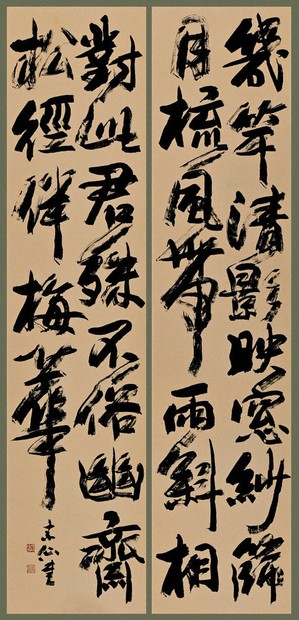 幾竿清影映窓紗篩
月梳風帶雨斜相
對此君殊不俗幽齋
松徑伴梅華